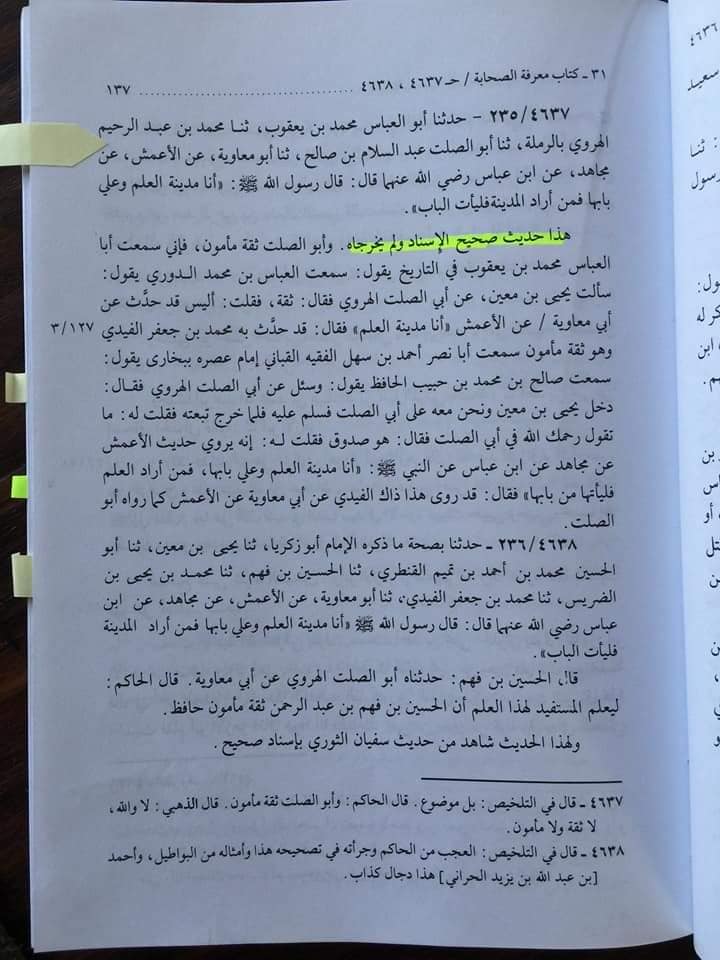 ٣١ ـ كتاب معرفة الصحابة / حـ ٤٦٣٧ ، ٤٦٣٨ ................................ ١٣٧
٢٣٥/٤٦٣٧ - حدثنا أبو العباس محمد بن يعقوب، ثنا محمد بن عبد الرحيم
الهروي بالرملة، ثنا أبو الصلت عبد السلام بن صالح، ثنا أبو معاوية، عن الأعمش، عن
مجاهد، عن ابن عباس رضي الله عنهما قال: قال رسول الله ﷺ: «أنا مدينة العلم وعلي
بابها فمن أراد المدينة فليأت الباب».
هذا حديث صحيح الإسناد ولم يخرجاه. وأبو الصلت ثقة مأمون، فإني سمعت أبا
العباس محمد بن يعقوب في التاريخ يقول: سمعت العباس بن محمد الدوري يقول:
سألت يحيى بن معين، عن أبي الصلت الهروي فقال: ثقة، فقلت: أليس قد حدَّث عن
أبي معاوية / عن الأعمش «أنا مدينة العلم» فقال: قد حدَّث به محمد بن جعفر الفيدي ٣/١٢٧
وهو ثقة مأمون سمعت أبا نصر أحمد بن سهل الفقيه القباني إمام عصره ببخارى يقول:
سمعت صالح بن محمد بن حبيب الحافظ يقول: وسئل عن أبي الصلت الهروي فقال:
دخل يحيى بن معين ونحن معه على أبي الصلت فسلم عليه فلما خرج تبعته فقلت له: ما
تقول رحمك الله في أبي الصلت فقال: هو صدوق فقلت لـه: إنه يروي حديث الأعمش
عن مجاهد عن ابن عباس عن النبي ﷺ: «أنا مدينة العلم وعلي بابها، فمن أراد العلم
فليأتها من بابها» فقال: قد روى هذا ذاك الفيدي عن أبي معاوية عن الأعمش كما رواه أبو
الصلت.
٢٣٦/٤٦٣٨ ـ حدثنا بصحة ما ذكره الإمام أبو زكريا، ثنا يحيى بن معين، ثنا أبو
الحسين محمد بن أحمد بن تميم القنطري، ثنا الحسين بن فهم، ثنا محمـد بن يحيى بن
الضريس، ثنا محمد بن جعفر الفيدي، ثنا أبو معاوية، عن الأعمش، عن مجاهد، عن ابن
عباس رضي الله عنهما قال: قال رسول الله ﷺ «أنا مدينة العلم وعلي بابها فمن أراد المدينة
فليأت الباب».
قال الحسين بن فهم: حدثناه أبو الصلت الهروي عن أبي معاوية. قال الحاكم:
ليعلم المستفيد لهذا العلم أن الحسين بن فهم بن عبد الرحمن ثقة مأمون حافظ.
ولهذا الحديث شاهد من حديث سفيان الثوري بإسناد صحيح.
٤٦٣٧ ـ قال في التلخيص: بل موضوع. قال الحاكم: وأبو الصلت ثقة مأمون. قال الذهبي: لا والله،
لا ثقة ولا مأمون.
٤٦٣٨ ـ قال في التلخيص: العجب من الحاكم وجرأته في تصحيحه هذا وأمثاله من البواطيل، وأحمد
[بن عبد الله بن يزيد الحراني] هذا دجال كذاب.